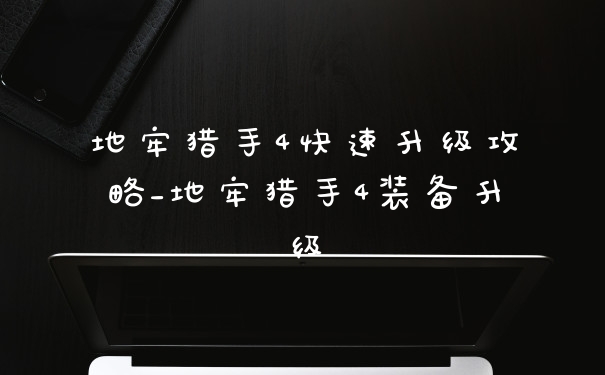 地牢猎手4快速升级攻
略_地牢猎手4装备升
级